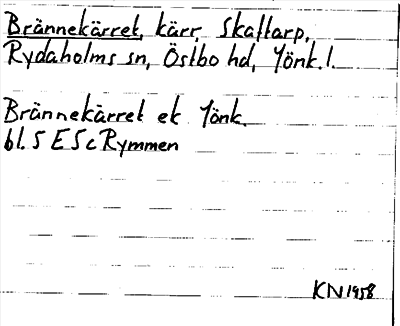 Brännekärret, kärr, Skaftarp,
Rydaholms sn, Östbo hd, Jönk. l.
Brännekärret ek Jönk.
bl. 5 E 5 c Rymmen
KN 1958